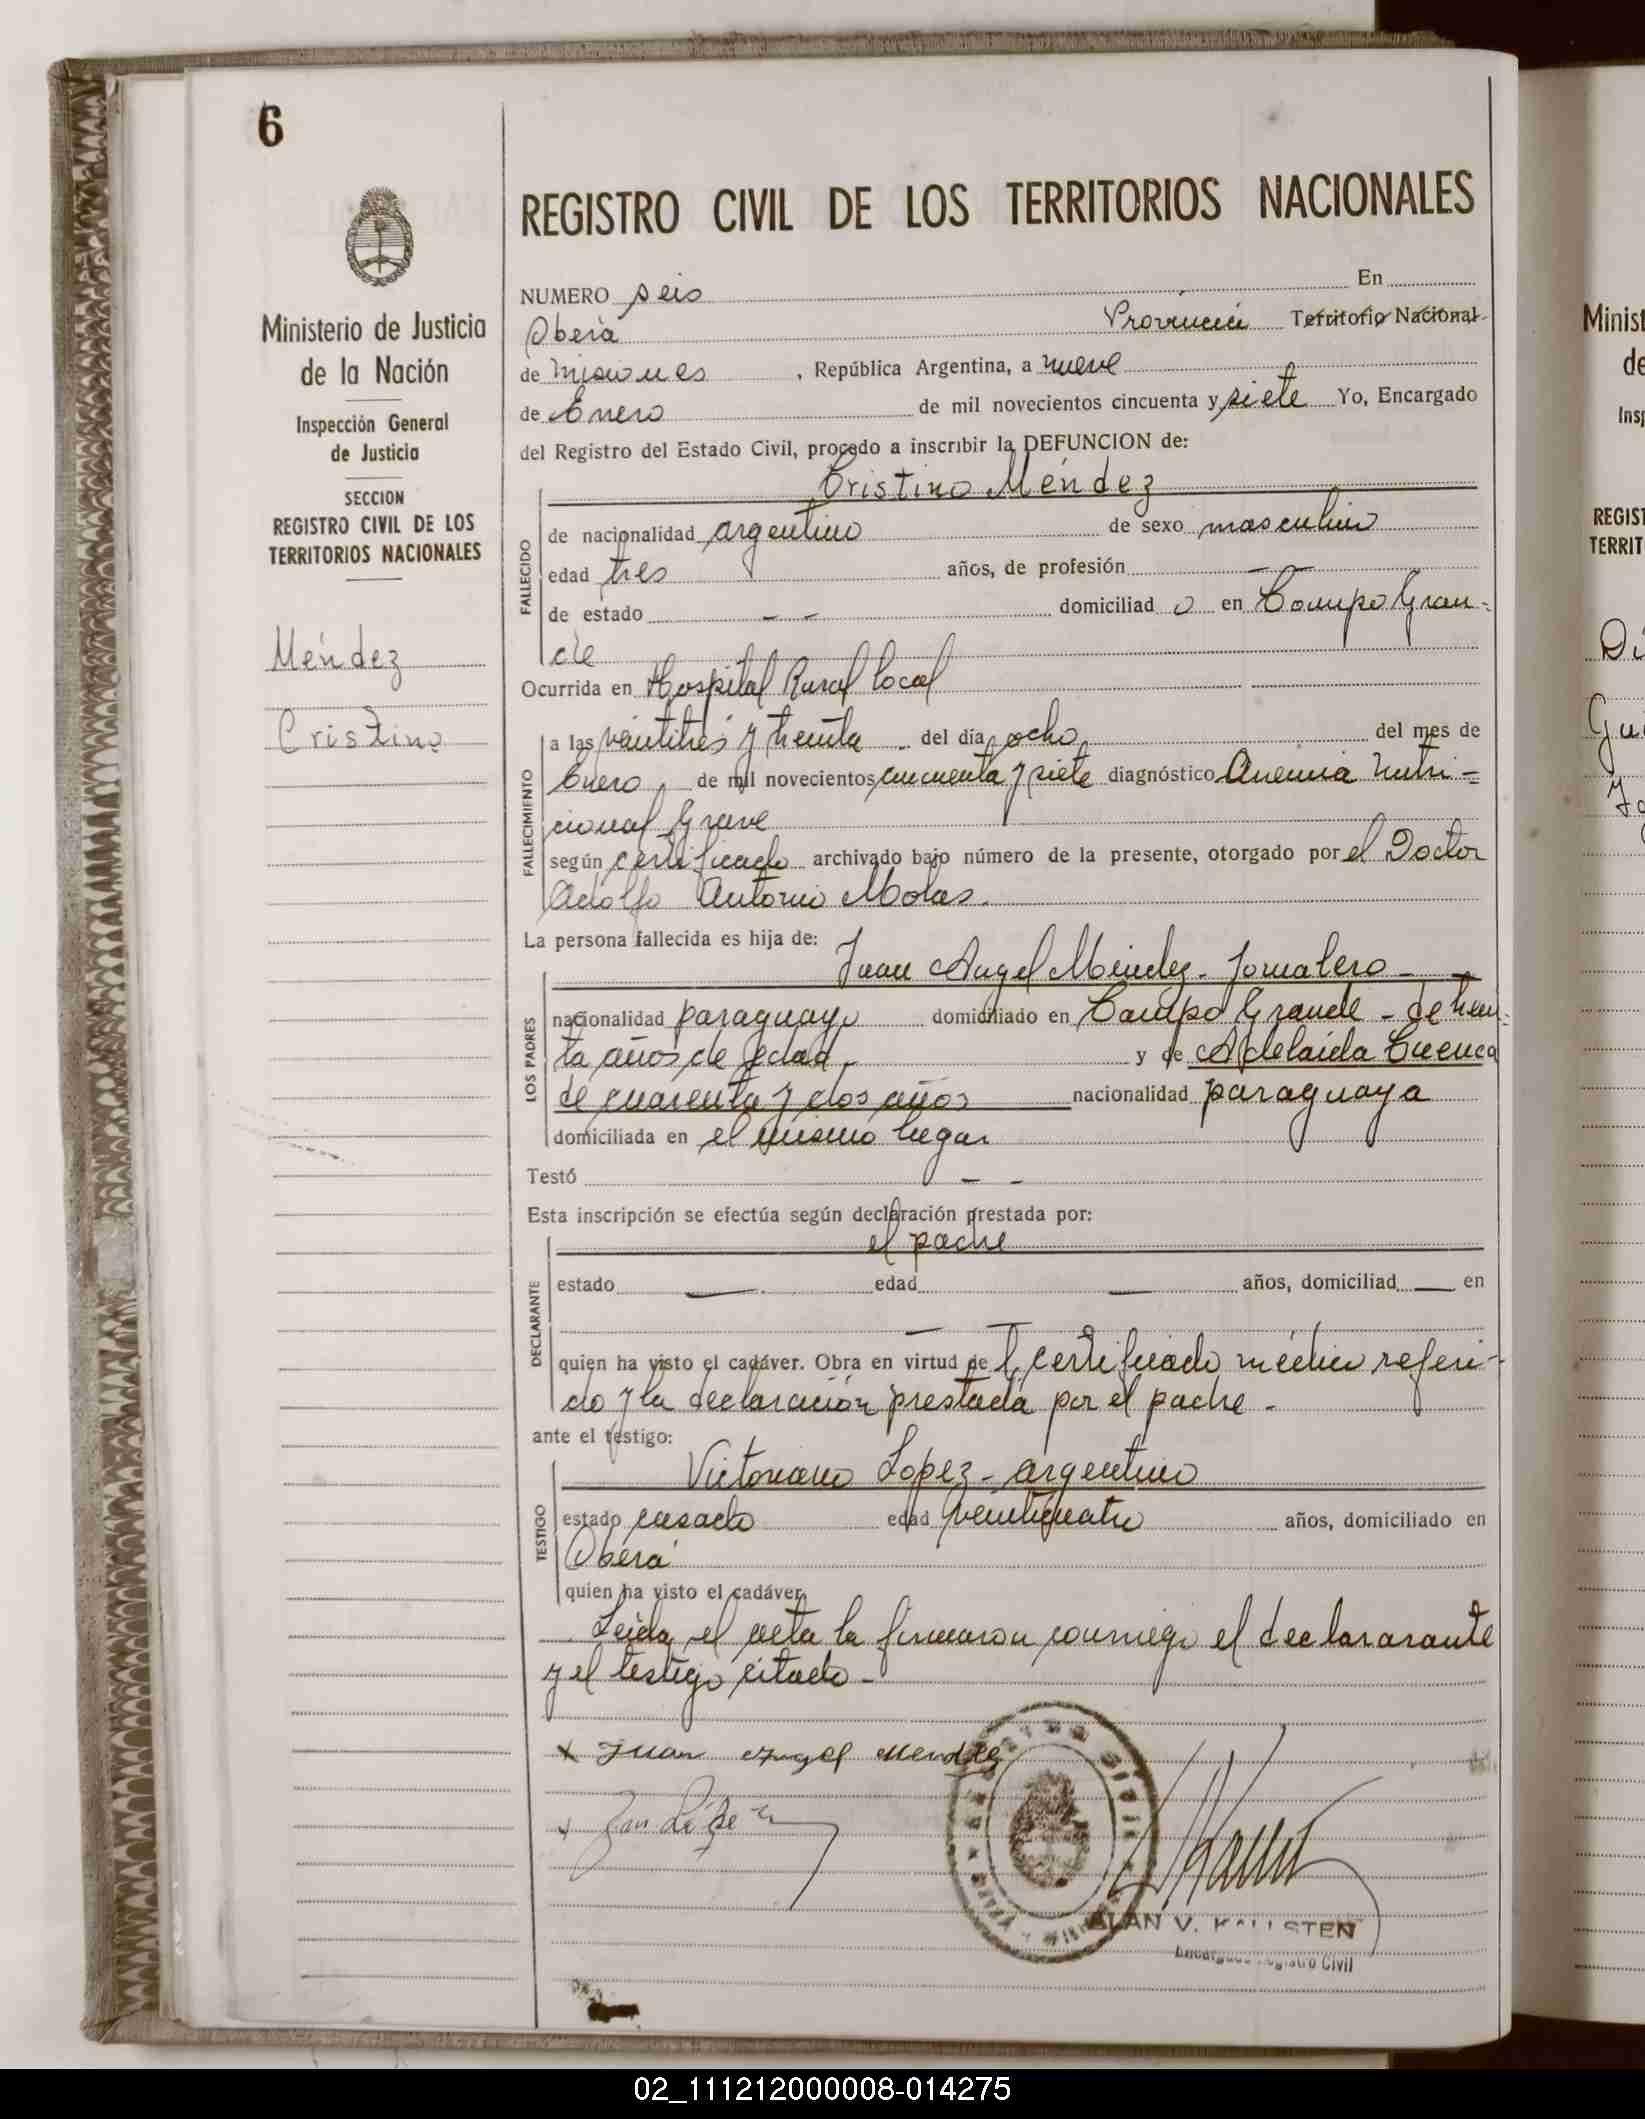 6
Ministerio de Justicia
de la Nación
Inspección General
de Justicia
SECCION
REGISTRO CIVIL DE LOS
TERRITORIOS NACIONALES
Méndez
Cristino
REGISTRO CIVIL DE LOS TERRITORIOS NACIONALES
NUMERO seis En
Oberá Provincia Territorio Nacional
de Misiones , República Argentina, a nueve
de Enero de mil novecientos cincuenta y siete Yo, Encargado
del Registro del Estado Civil, procedo a inscribir la DEFUNCION de:
Cristino Méndez
FALLECIDO
de nacionalidad argentino de sexo masculino
edad tres años, de profesión
de estado - - domiciliad o en Campo Gran=
de
Ocurrida en Hospital Rural local
FALLECIMIENTO
a las veintitrés y treinta del día ocho del mes de
Enero de mil novecientos cincuenta y siete diagnóstico Anemia nutri=
cional grave
según certificado archivado bajo número de la presente, otorgado por el Doctor
Adolfo Antonio Molas.
La persona fallecida es hija de:
Juan Angel Méndez - Jornalero -
LOS PADRES
nacionalidad paraguayo domiciliado en Campo Grande - de trein-
ta años de edad - y de Adelaida Cuenca
de cuarenta y dos años nacionalidad paraguaya
domiciliada en el mismo lugar
Testó - -
Esta inscripción se efectúa según declaración prestada por:
el padre
DECLARANTE
estado — edad — años, domiciliad — en
— —
quien ha visto el cadáver. Obra en virtud de l certificado médico referi-
do y la declaración prestada por el padre -
ante el testigo:
Victoriano López - argentino
TESTIGO
estado casado edad veinticuatro años, domiciliado en
Oberá
quien ha visto el cadáver
Leída el acta la firmaron conmigo el declararante
y el testigo citado -
x Juan Angel Mendez
x
ALAN V. KALLSTEN
Encargado Registro Civil
Minist
de
Insp
REGIST
TERRIT
02_111212000008-014275